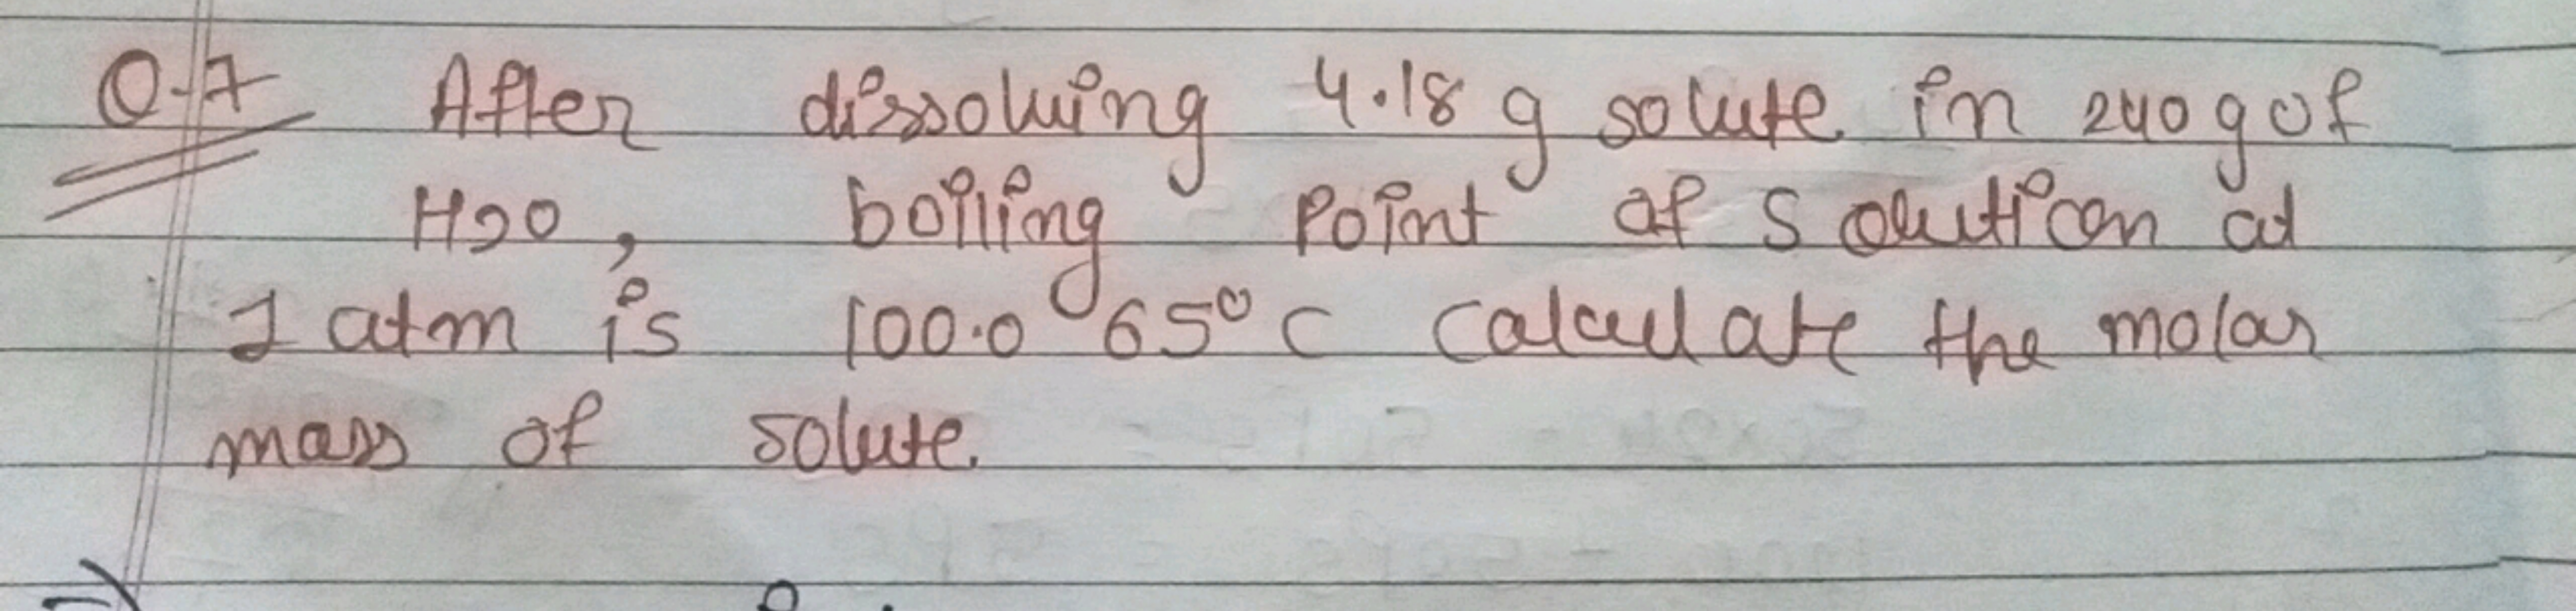 Q.7 After dissolving 4.18 g solute in 240 g of
H2O, boiling Point of Solution at
1 atm is 100.065°C Calculate the molar
mass of solute.